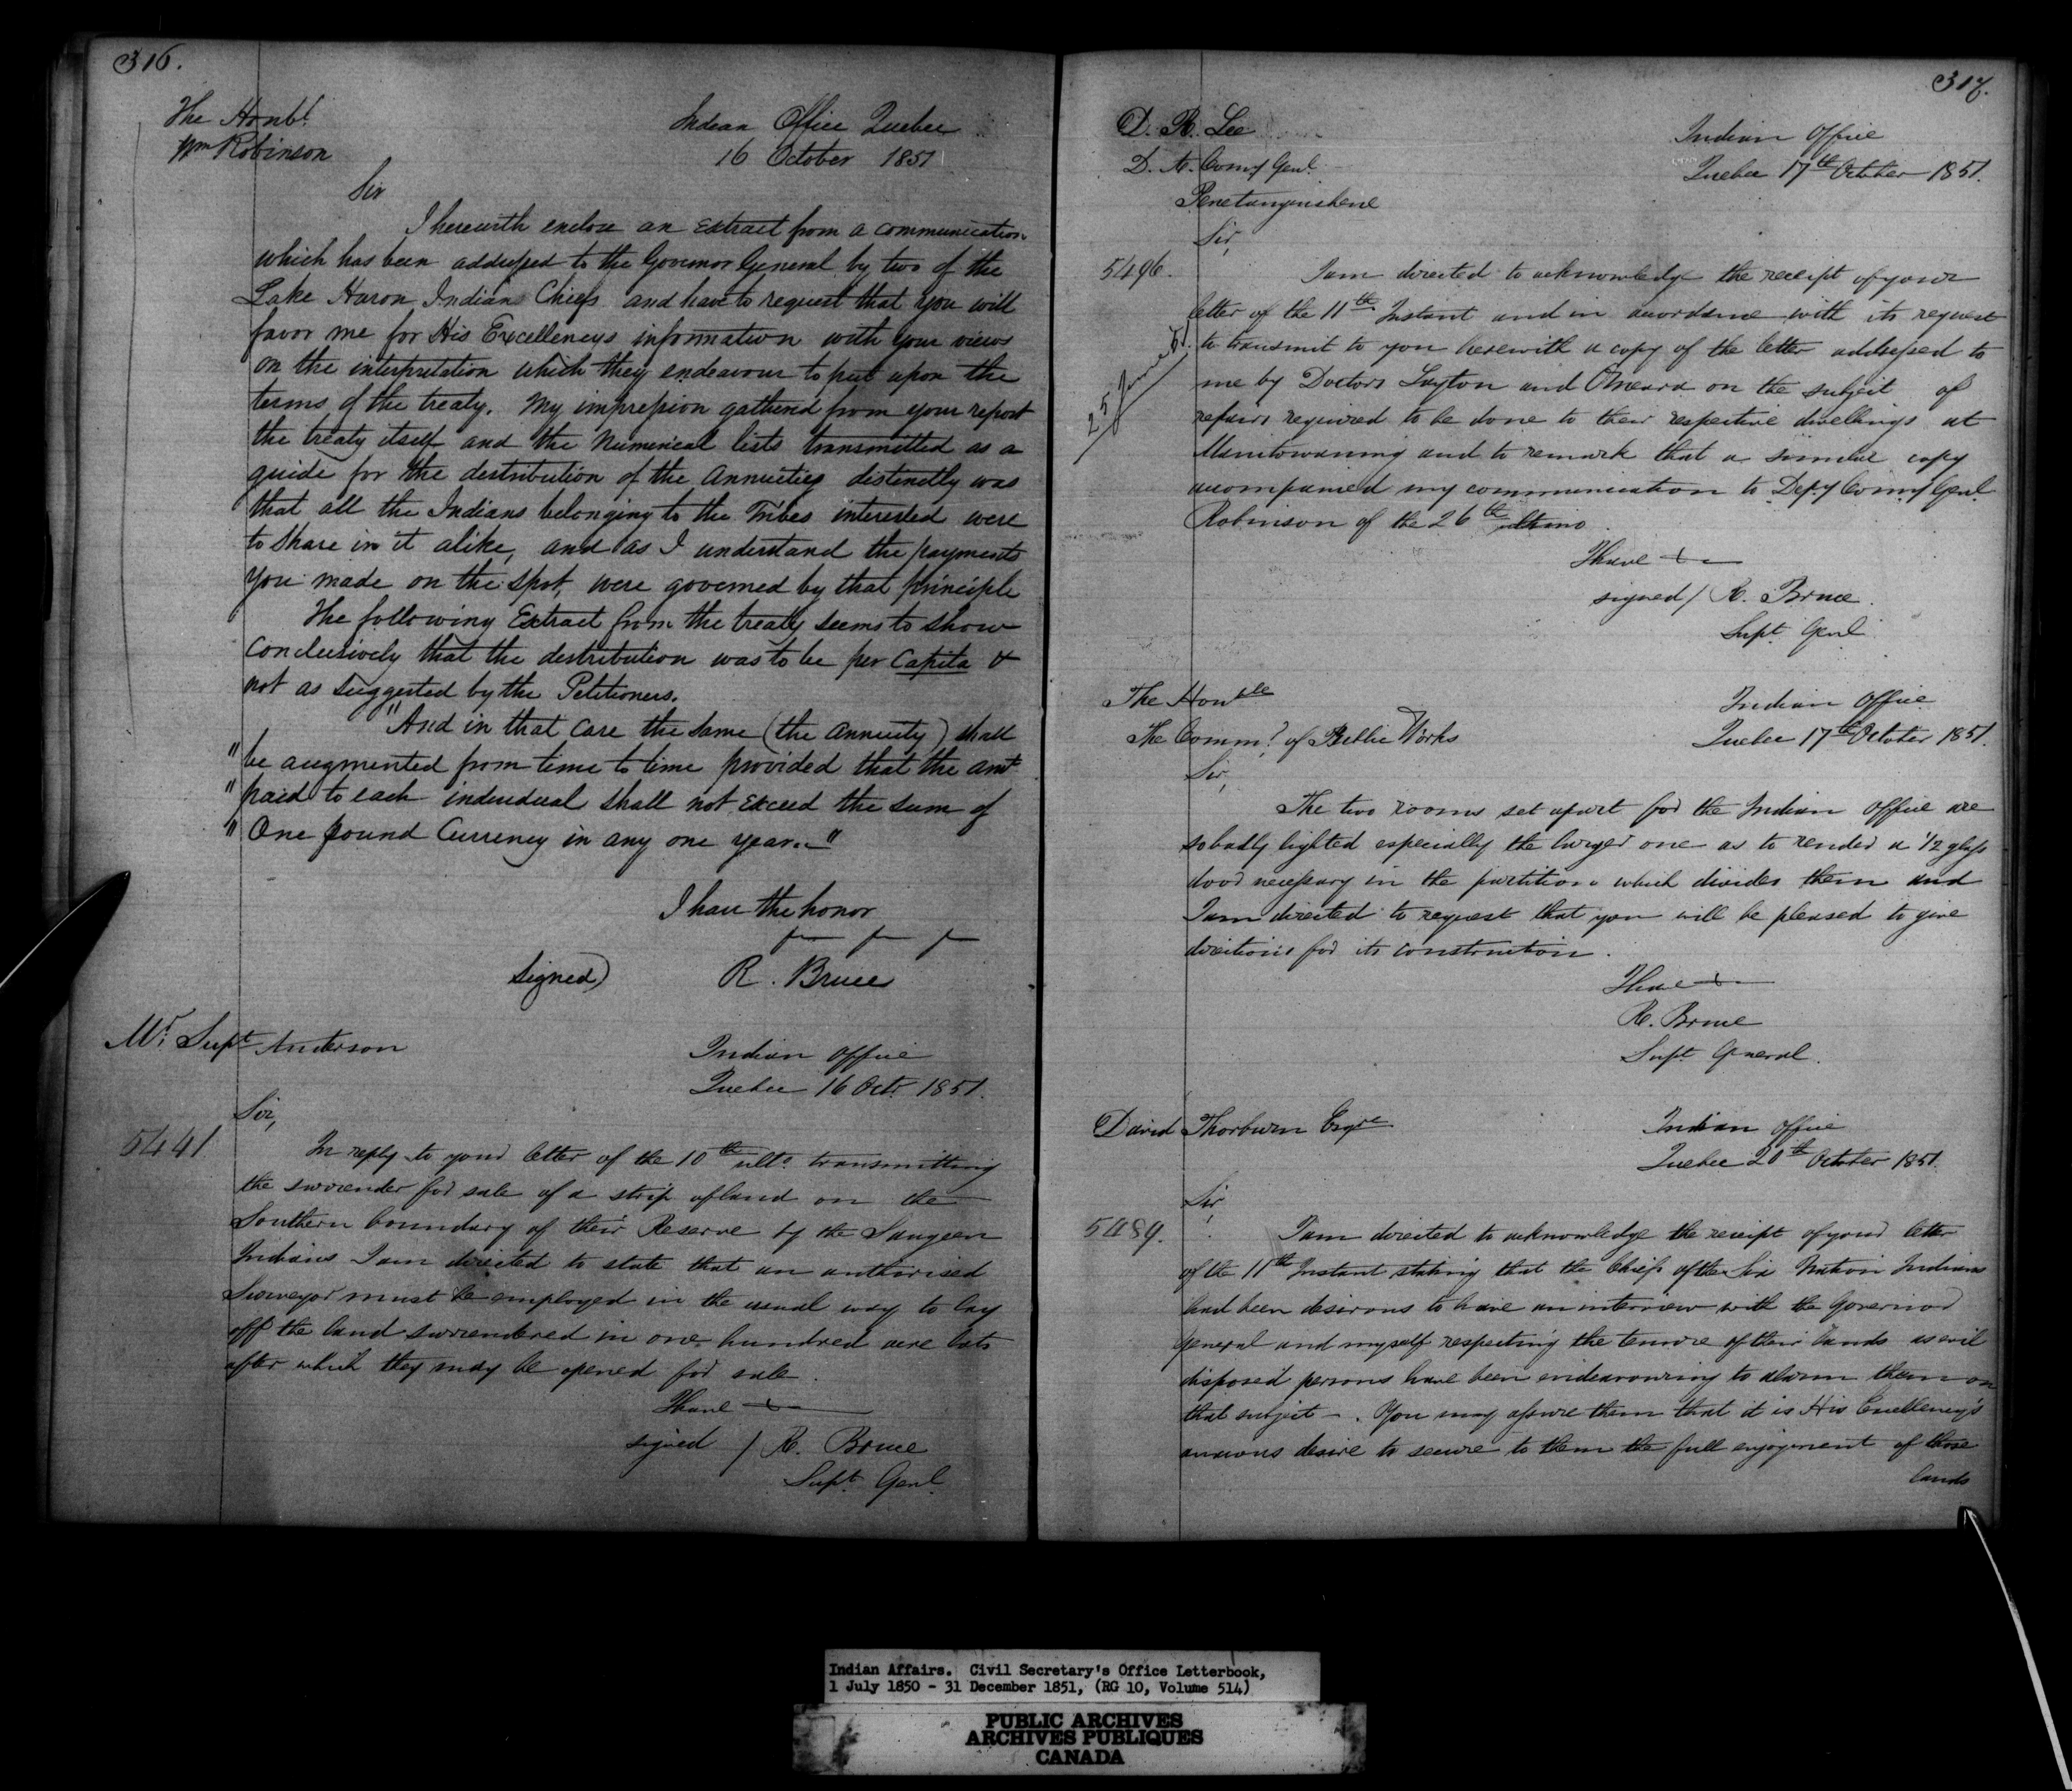 316.
The Honbl.
Wm Robinson
Indean Office Quebec
16 October 1851
Sir
I herewith enclose an Extract from a communication
which has been addressed to the Governor General by two of the
Lake Huron Indians Chiefs and have to request that you will
favor me for His Excellencys information with your views
on the interpretation which they endeavour to put upon the
terms of the treaty. My impression gathered from your report
the treaty itself and the Numerical lists transmitted as a
guide for the destribution of the Annuities distinctly was
that all the Indians belonging to the Tribes interested were
to share in it alike, and as I understand the payments
you made on the spot, were governed by that principle
The following Extract from the treaty seems to show
conclusively that the destribution was to be per Capita &
not as suggested by the Petitioners.
"And in that case the same (the annuity) shall
" be augmented from time to time provided that the amt
" paid to each individual shall not exceed the sum of
" One pound Currency in any one year."
I have the honor
signed) R. Bruce
Mr. Supt Anderson
Indian Office
Quebec 16 Octr 1851.
Sir,
5441
In reply to your letter of the 10th ulto transmitting
the surrender for sale of a strip of land on the
Southern boundary of their Reserve by the Saugeen
Indians I am directed to state that an authorised
Surveyor must be employed in the usual way to lay
off the land surrendered in one hundred acre lots
after which they may be opened for sale.
I have
signed / R. Bruce
Supt. Genl.
317.
D. R. Lee
D. A. Comy Genl.
Penetanguishene
Indian Office
Quebec 17th October 1851.
Sir,
5496.
I am directed to acknowledge the receipt of your
letter of the 11th Instant and in accordance with its request
to transmit to you herewith a copy of the letter addressed to
25 June
me by Doctors Layton and OMeara on the subject of
repairs required to be done to their respective dwellings at
Manitowaning and to remark that a similar copy
accompanied my communication to Depy Comy Genl
Robinson of the 26th ultimo.
I have
signed / R. Bruce.
Supt. Genl.
The Honble
The Comm? of Public Works
Indian Office
Quebec 17th October 1851.
Sir,
The two rooms set apart for the Indian Office are
so badly lighted especially the larger one as to render a 1/2 glass
door necessary in the partition which divides them and
I am directed to request that you will be pleased to give
directions for its construction.
I have
R. Bruce
Supt. General.
David Thorburn Esqre
Indian Office
Quebec 20th October 1851.
Sir,
5489.
I am directed to acknowledge the receipt of your letter
of the 11th Instant stating that the Chiefs of the Six Nation Indians
had been desirous to have an interview with the Governor
General and myself respecting the tenure of their lands as evil
disposed persons have been endeavouring to alarm them on
that subject -. You may assure them that it is His Excellency's
anxious desire to secure to them the full enjoyment of those
lands
Indian Affairs. Civil Secretary's Office Letterbook,
1 July 1850 - 31 December 1851, (RG 10, Volume 514)
PUBLIC ARCHIVES
ARCHIVES PUBLIQUES
CANADA